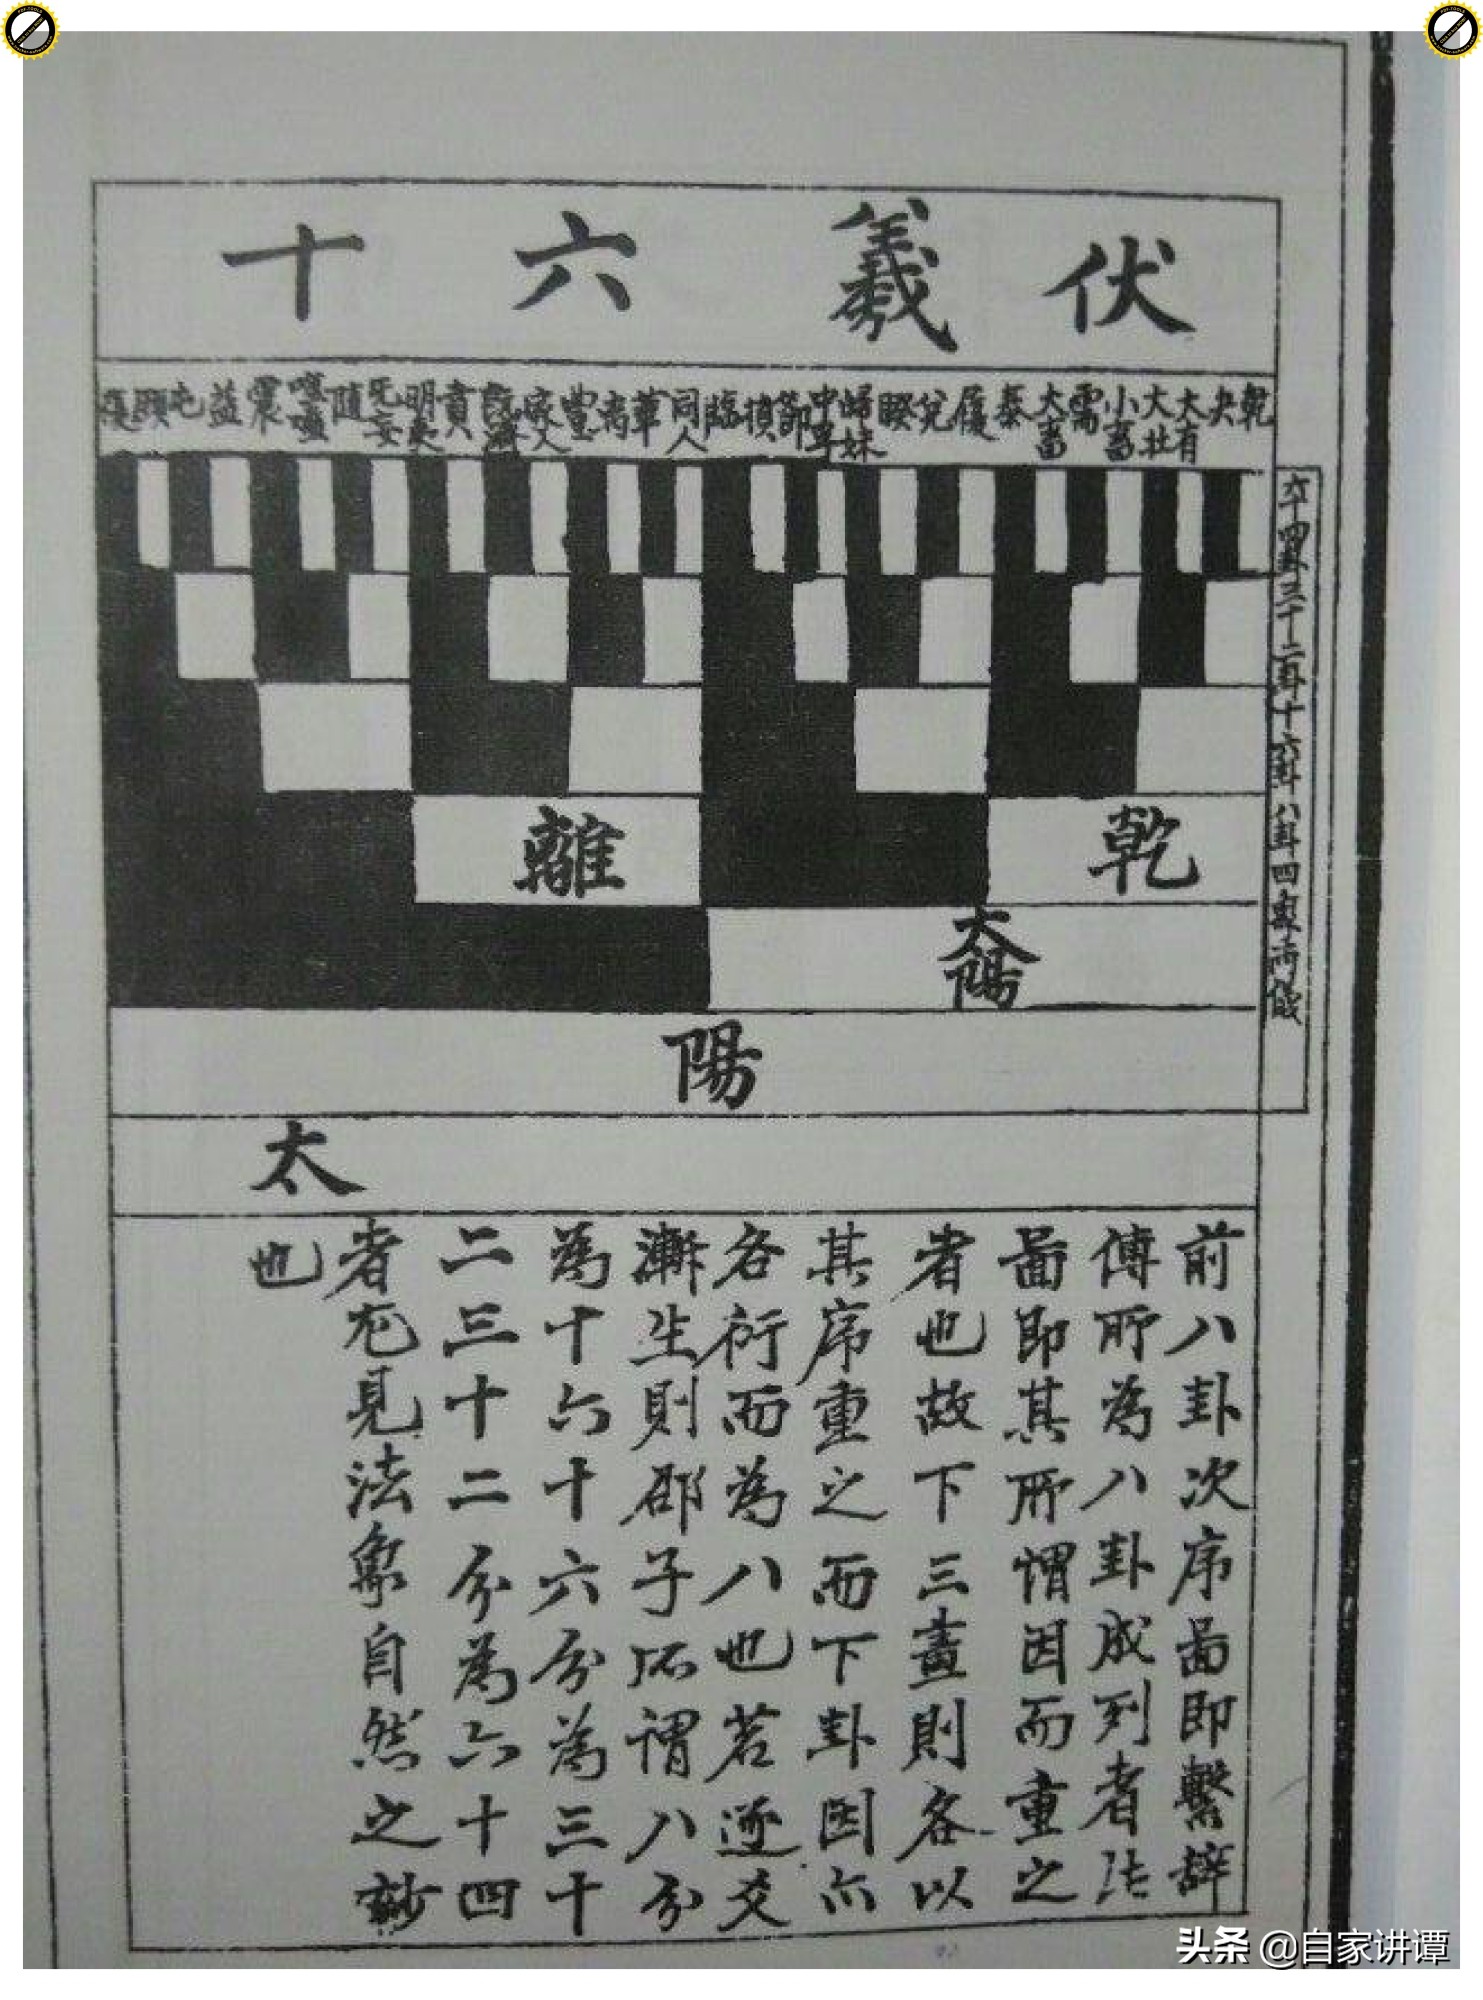 伏羲六十
乾 夬 大有 大壯 小畜 需 大畜 泰 履 兌 睽 歸妹 中孚 節 損 臨 同人 革 离 豐 家人 既濟 賁 明夷 无妄 随 噬嗑 震 益 屯 頤 復
六十四卦三十二卦十六卦八卦四象兩儀
乾 離
太陽
陽
太
前八卦次序啚即繫辭
傳所為八卦成列者法
啚即其所謂因而重之
者也故下三畫則各以
其序重之而下卦因亦
各衍而為八也若逐爻
漸生則邵子所謂八分
為十六十六分為三十
二三十二分為六十四
者尤見法象自然之妙
也
头条 @白家讲谭